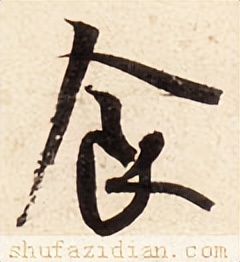 食
shufazidian.com